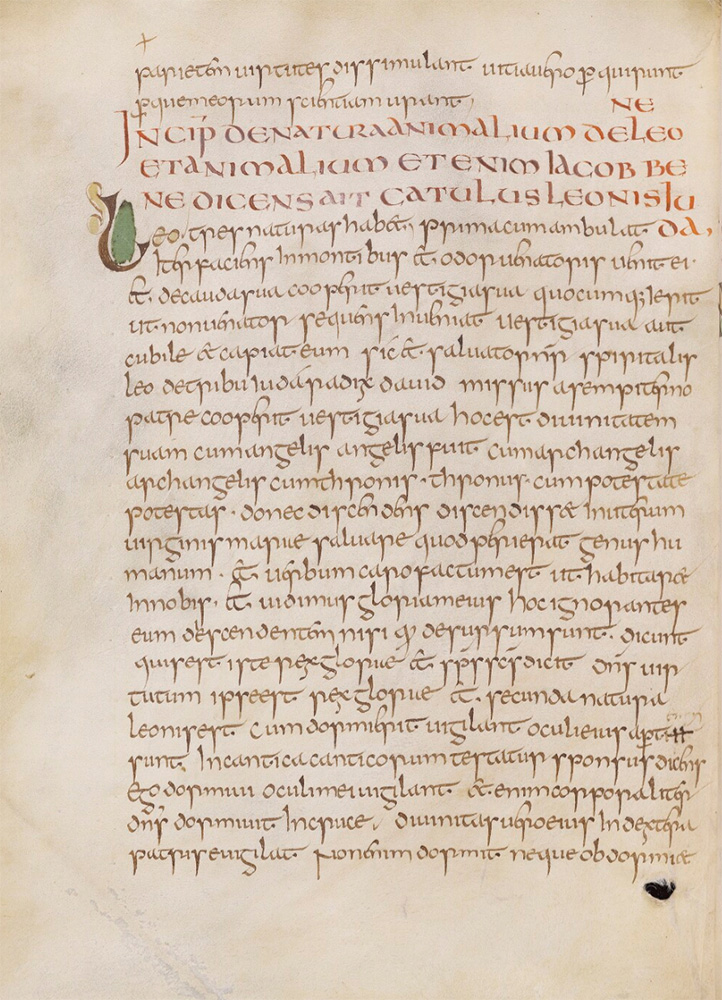 parietem uirtutes dissimulant uitia uero perquirunt
per quem eorum scientiam urant
NE
INCIP DE NATURA ANIMALIUM DE LEO
ET ANIMALIUM ET ENIM IACOB BE
NE DICENS AIT CATULUS LEONIS IU
DA,
Leo tres naturas habet prima cum ambulat
iter faciens in montibus et odor uenatoris uenit ei·
et de cauda sua cooperit uestigia sua quocumq; ierit
ut non uenator sequens inueniat uestigia sua aut
cubile et capiat eum sic et saluator nr spiritalis
leo de tribu iuda radix dauid missus a sempiterno
patre cooperit uestigia sua hoc est diuinitatem
suam cum angelis angelis fuit cum archangelis
archangelis cum thronis · thronus · cum potestate
potestas · donec discendens discendisset in uterum
uirginis mariae saluare quod perierat genus hu
manum · et uerbum caro factum est ut habitaret
in nobis · et uidimus gloriam eius hoc ignorantes
eum descendentem nisi qui desursum sunt · dicunt
quis est iste rex gloriae et sps scs dicit dns uir
tutum ipse est rex gloriae et secunda natura
leonis est cum dormierit uigilant oculi eius aperti
sunt In cantica canticorum testatur sponsus dicens
Ego dormiui oculi mei uigilant et enim corporaliter
dns dormiuit in cruce, diuinitas uero eius in dextera
patris euigilat Non enim dormit neque obdormiet